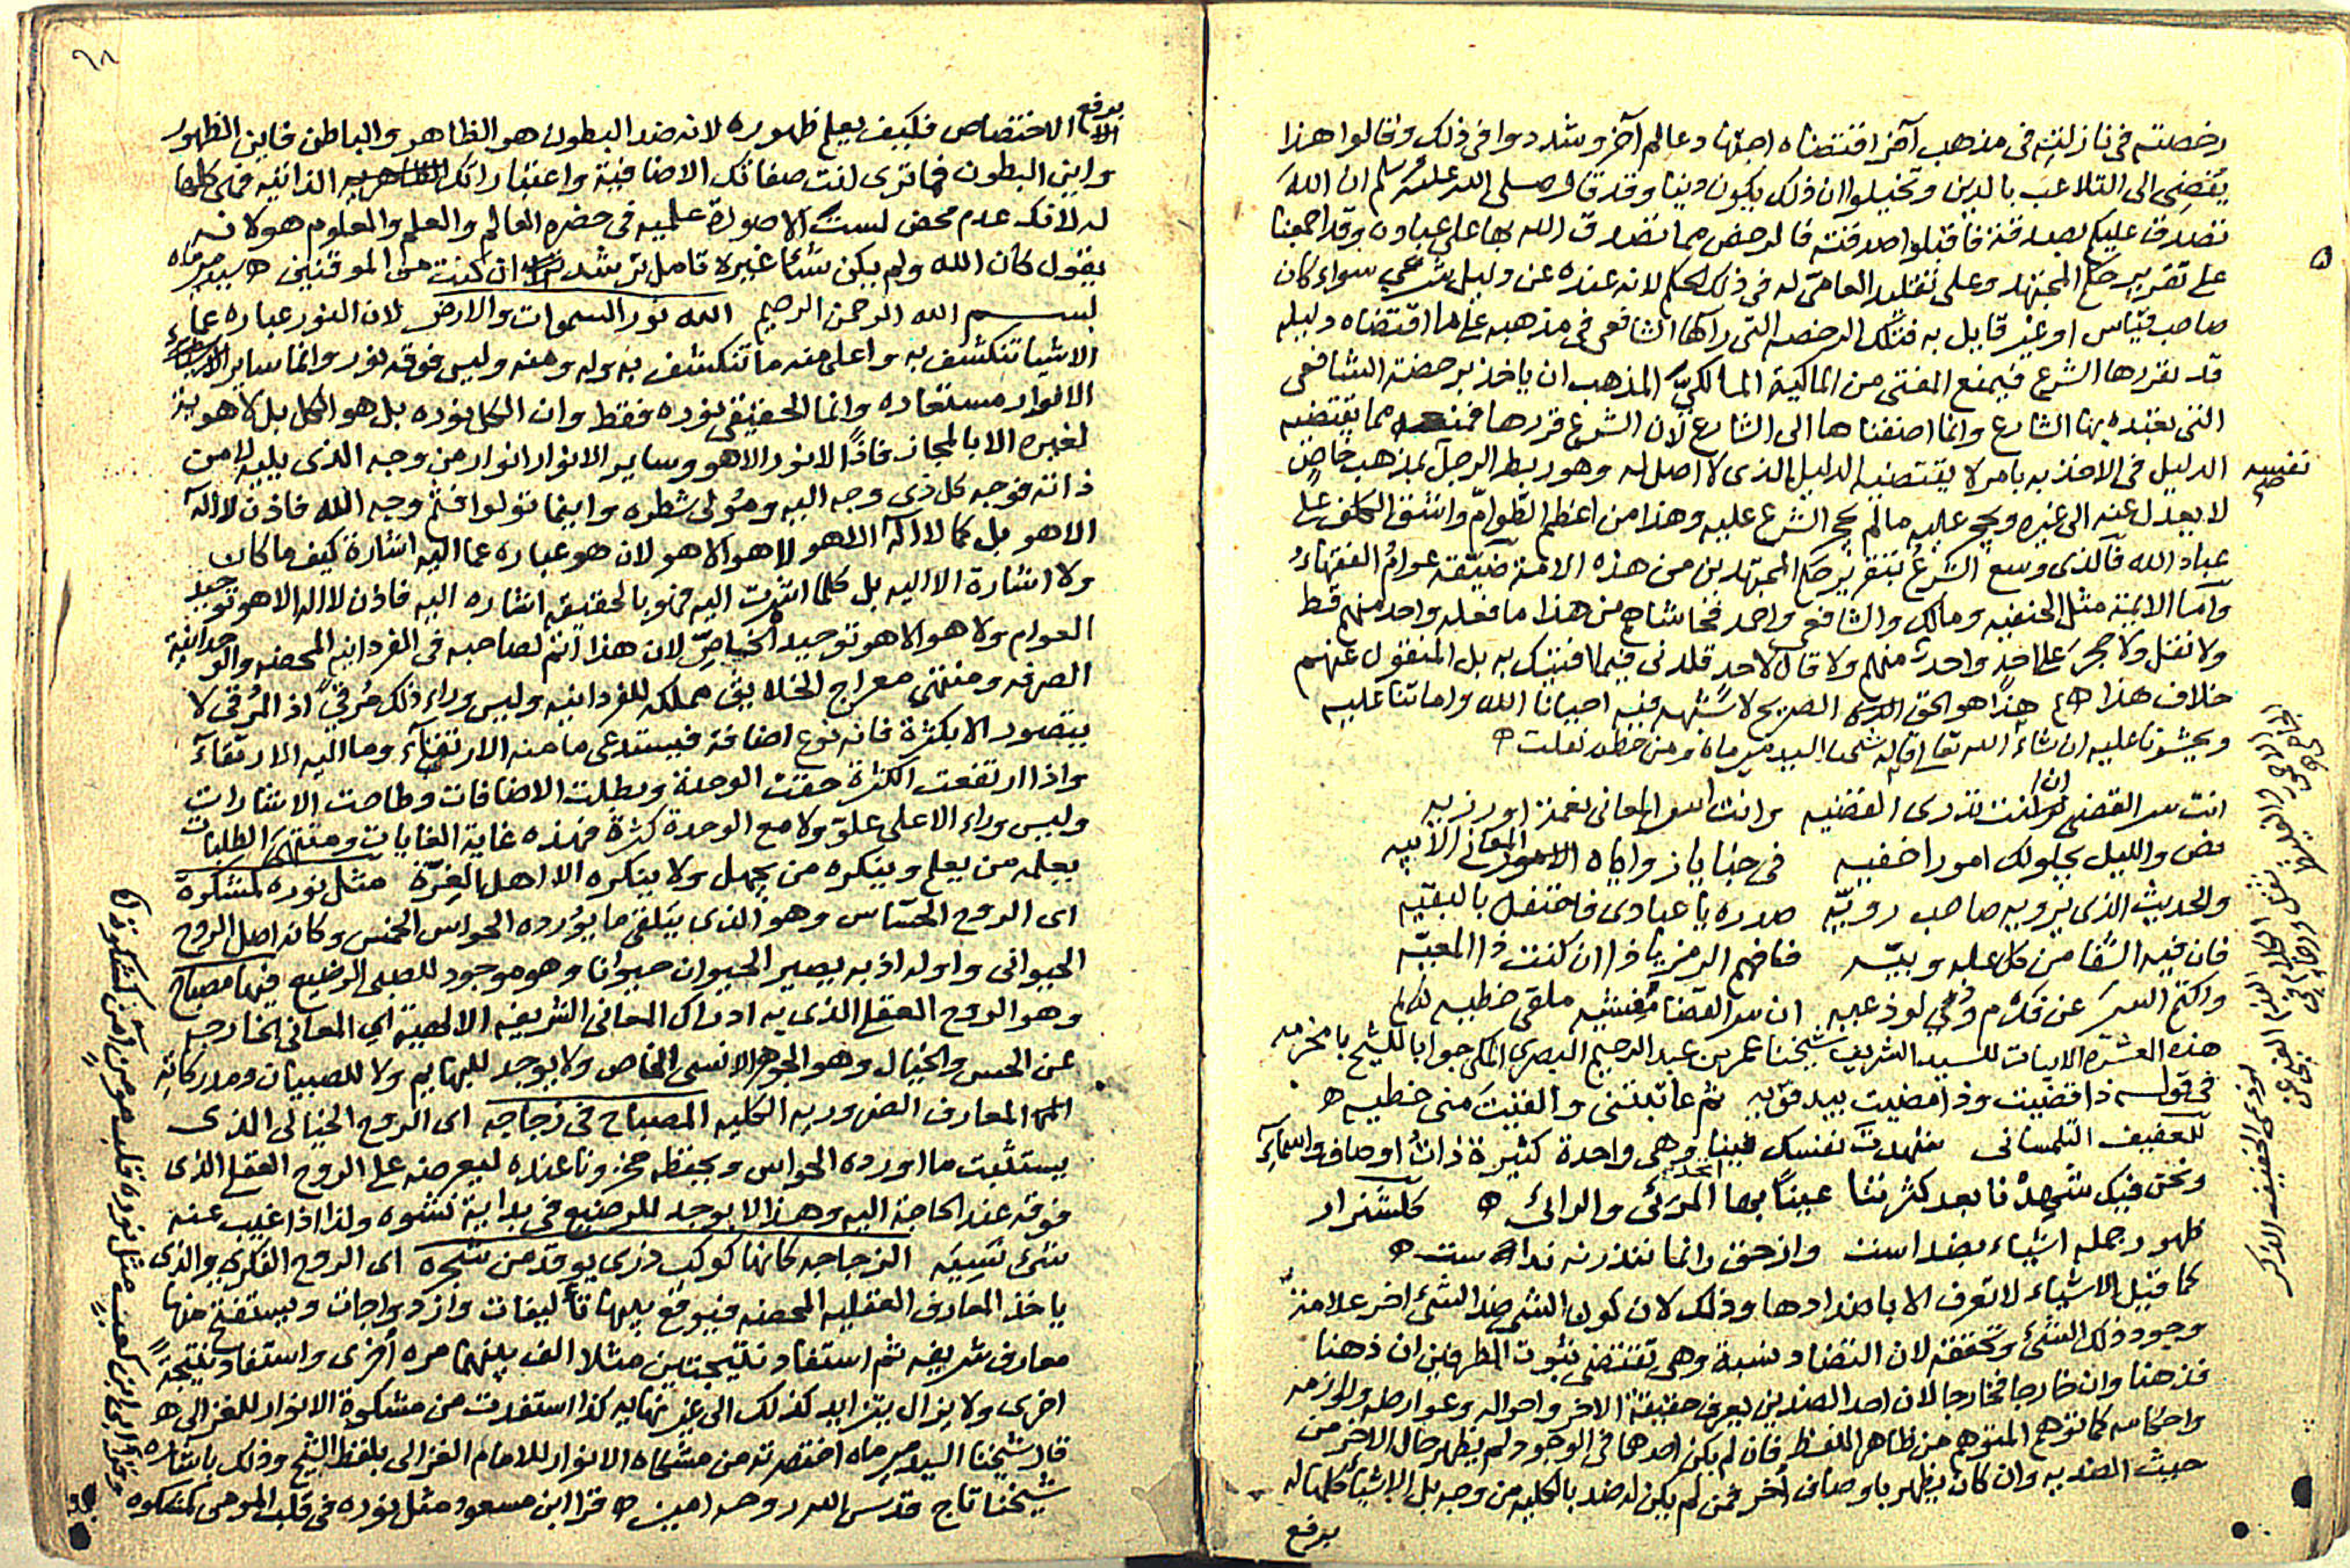 رخصته في نازلته في مذهب آخر اقتضاه اجتهاد عالم آخر وشددوا في ذلك وقالوا هذا
يفضي الى التلاعب بالدين وتخيلوا ان ذلك يكون دينا وقد قال صلى الله عليه وسلم ان الله
تصدق عليكم بصدقة فاقبلوا صدقته فالرخص مما تصدق الله بها على عباده وقد اجمعنا
على تقرير حكم المجتهد وعلى تقليد العامي له في ذلك الحكم لانه عنده عن دليل شرعي سواء كان
صاحب قياس او غير قايل به فتلك الرخصه التي رآها الشافعي في مذهبه على ما اقتضاه دليله
قد يقررها الشرع فيمنع المفتي من المالكية المالكيّ المذهب ان ياخذ برخصة الشافعي
التي تعبده بها الشارع وانما اضفناها الى الشارع لان الشرع قررها فمنعه مما يقتضيه
الدليل في الاخذ به بامر لا يقتضيه الدليل الذي لا اصل له وهو ربط الرجل بمذهب خاص
لا يعدل عنه الى غيره ويحجر عليه ما لم يحجر الشرع عليه وهذا من اعظم الطوامّ واشق الكلف على
عباد الله فالذي وسع الشرعُ بتقرير حكم المجتهدين من هذه الامة ضيّقه عوامُ الفقهاء
وأمّا الائمة مثل الحنفيه ومالك والشافعي واحمد فحاشاهم من هذا ما فعله واحد منهم قط
ولا نقل ولا حجر على احد واحدٌ منهم ولا قال لاحد قلدني فيما افتيتك به بل المنقول عنهم
خلاف هذا ه هذا هو الحق الصريح لا شبهه فيه احيانا الله واماتنا عليه
ويحشرنا عليه ان شاء الله تعالى قاله شيخنا السيد مير ماه ومن خطه نقلت ه
انت سر القضى ان كنت تدرى القضيه وانت اسرار المعانى
نض والليل يجلو لك امورا خفيه في خبايا زوايا الامور المعاني الابيه
والحديث الذي يرويه صاحب رويّه صدره يا عبادى فاحتفل بالبقيّه
فان فيه الشفا من كل عله وبيّه فافهم الرمز يا ذا ان كنت ذا المعيّه
واكتم السر عن فدم وفي لوذعيه ان سر القضا مُفشيه ملقى خطيه
هذه العشرة الابيات للسيد الشريف شيخنا عمر بن عبد الرحيم البصري المكي جوابا للشيخ بامخرمه
في قوله ذا قضيت وذا مضيت بيد قوّيه ثم عاتبتني والقيت منى خطيه ه
للعفيف التلمسانى شهدت نفسك فينا وهي واحدة كثيرة ذات اوصاف واسماء
ونحن فيك شهدنا بعد كثرتنا عينًا بها اتحد المرئى والرائى ه گلشن راز
ظهور جمله اشياء بضد است ولى حق را نه مانند ونه ند است ه
كما قيل الاشياء لا تعرف الا باضدادها وذلك لان كون الشيء ضد الشيء اخر علامة
وجود ذلك الشيء وتحققه لان التضاد نسبة وهي تقتضى ثبوت الطرفين ان ذهنا
فذهنا وان خارجا فخارجا لان احد الضدين يعرف حقيقة الآخر واحواله وعوارضه ولوازمه
واحكامه كما توهم المتوهم من ظاهر اللفظ فان لم يكن احدهما في الوجود لم يظهر حال الآخر من
حيث الضديه وان كان يظهر باوصاف أخر فمن لم يكن له ضد بالكليه من وجه بل الاشياء كلها له
يرفع
نفسه صح
٩٨
يرفع
الاختصاص فكيف يعلم ظهوره لانه ضد البطون هو الظاهر والباطن فاين الظهور
واين البطون فما ترى انت صفاتك الاضافية واعتباراتك الذاتيه فهي كلها
له لانك عدم محض لست الا صورة علميه في حضرة العالم والعلم والمعلوم هو لانه
يقول كان الله ولم يكن شيئا غيره تامل ترشد ان كنت من الموقنين ه سيد مير ماه
بسم الله الرحمن الرحيم الله نور السموات والارض لان النور عباره عما
الاشيا تنكشف به واعلى منه ما تنكشف به وله ومنه وليس فوقه نور وانما ساير
الانوار مستعاره وانما الحقيقي نوره فقط وان الكل نوره بل هو الكل بل لا هوية
لغيره الا بالمجاز فاذًا لا نور الا هو وساير الانوار انوار من وجه الذي يليه لا من
ذاته فوجه كل ذى وجه اليه ومُولى شطره واينما تولوا فثم وجه الله فاذن لا اله
الا هو بل كما لا اله الا هو لا هو الا هو لان هو عباره عما اليه اشارة كيف ما كان
ولا اشارة الا اليه بل كلما اشرت اليه فهو بالحقيقه اشاره اليه فاذن لا اله الا هو توحيد
العوام ولا هو الا هو توحيد الخواصّ لان هذا اتم لصاحبه في الفردانيه المحضه والوحدانية
الصرفه ومنتهى معراج الخلايق مملكه الفردانيه وليس وراء ذلك مُرقىً اذ المُرقى لا
يتصور الا بكثرة فانه نوع اضافة فيستدعى ما منه الارتقاء وما اليه الارتقاء
واذا ارتفعت الكثرة حقت الوحدة وبطلت الاضافات وطاحت الاشارات
وليس وراء الاعلى علوّ ولا مع الوحدة كثرة فهذه غاية الغايات ومنتهى الطلبات
يعلمه من يعلم وينكره من يجهل ولا ينكره الا اهل الغرّة مثل نوره كمشكوة
اى الروح الحساس وهو الذى يتلقى ما يورده الحواس الخمس وكانه اصل الروح
الحيوانى واوله اذ به يصير الحيوان حيوانا وهو موجود للصبى الرضيع فيها مصباح
وهو الروح العقلى الذى به ادراك المعانى الشريفه الالهية اي المعانى الخارجه
عن الحس والخيال وهو الجوهر الانسى الخاص ولا يوجد للبهايم ولا للصبيان ومدركاته
المعارف الضروريه الكليه المصباح في زجاجه اى الروح الخيالى الذى
يستثبت ما اورده الحواس ويحفظه مخزونا عنده ليعرضه على الروح العقلى الذى
فوقه عند الحاجة اليه وهذا لا يوجد للرضيع في بداية نشوه ولذا اذا غيب عنه
شئ نسيه الزجاجه كانها كوكب درى يوقد من شجره اى الروح الفكري والذى
ياخذ المعارف العقليه المحضه فيوقع بينها تأليفات وازدواجات ويستنتج منها
معارف شريفه ثم استفاد نتيجتين مثلا الف بينهما مره أخرى واستفاد نتيجةً
اخرى ولا يزال يتزايد كذلك الى غير نهايه كذا استفدت من مشكوة الانوار للغزالى ه
قال شيخنا السيد مير ماه اختصرته من مشكاه الانوار للامام الغزالى بلفظ الشيخ وذلك باشاره
شيخنا تاج قدس الله روحه امين ه قرا ابن مسعود مثل نوره في قلب المومن كمشكوه
وقرا ابى ابن كعب مثل نور قلب مومن آمن كمشكوة